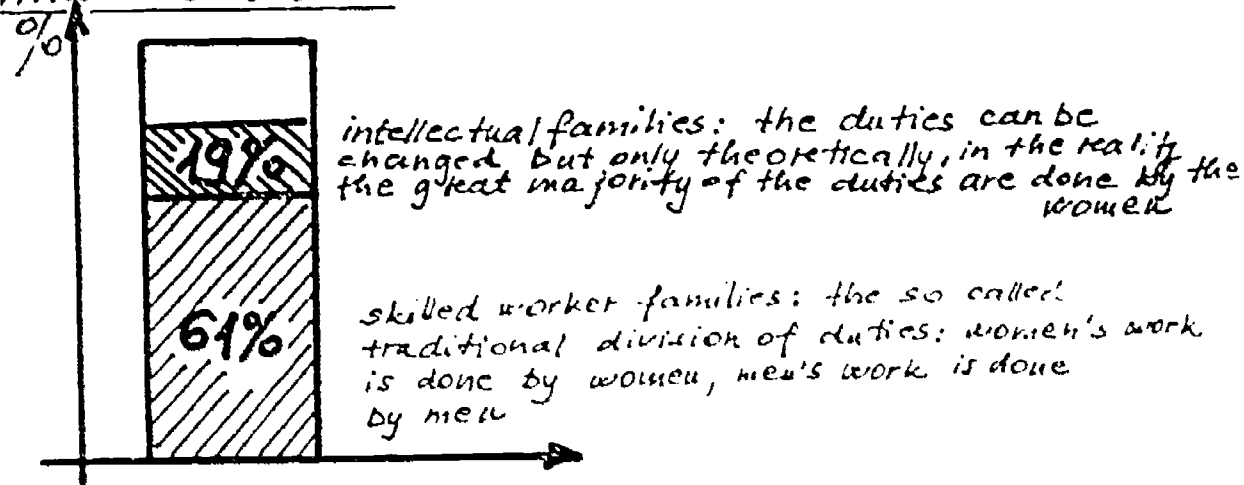 %
19%
intellectual families: the duties can be
changed, but only theoretically, in the reality
the great majority of the duties are done by the
women
61%
skilled worker families: the so called
traditional division of duties: women's work
is done by women, men's work is done
by men